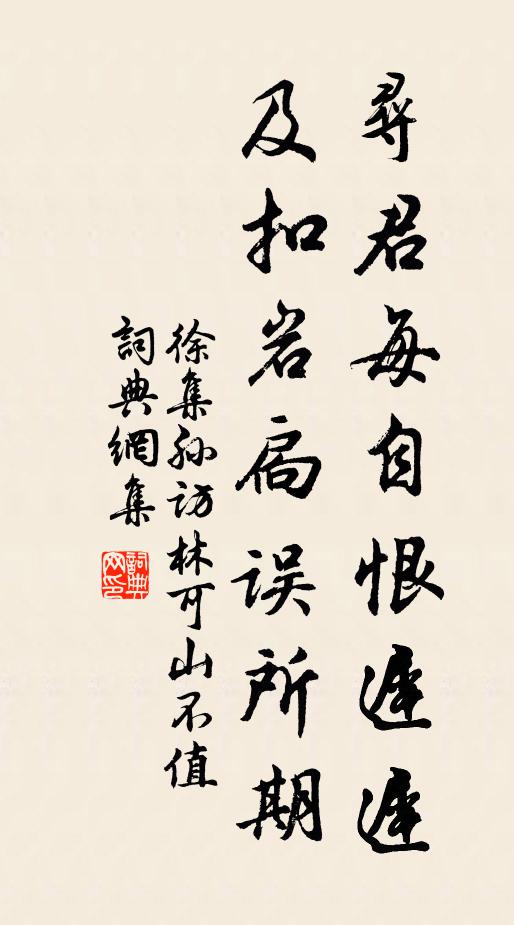 尋君每自恨遲遲
及扣岩扃误所期
徐集孫訪林可山不值
詞典網集
詞典
网印